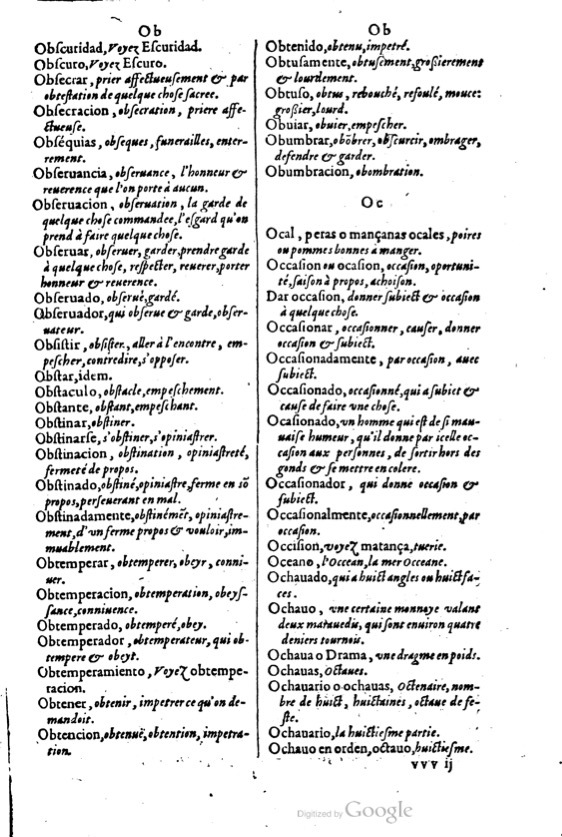 Ob
Obſcuridad, Voyez Eſcuridad.
Obſcuro, Voyez Eſcuro.
Obſecrar, prier affectueuſement & par
obteſtation de quelque choſe ſacree.
Obſecracion, obſecration, priere affe-
ctueuſe.
Obſéquias, obſeques, funerailles, enter-
rement.
Obſeruancia, obſeruance, l'honneur &
reuerence que l'on porte à aucun.
Obſeruacion, obſeruation, la garde de
quelque choſe commandee, l'eſgard qu'on
prend à faire quelque choſe.
Obſeruar, obſeruer, garder, prendre garde
à quelque choſe, reſpecter, reuerer, porter
honneur & reuerence.
Obſeruado, obſerué, gardé.
Obſeruador, qui obſerue & garde, obſer-
uateur.
Obſiſtir, obſiſter, aller à l'encontre, em-
peſcher, contredire, s'oppoſer.
Obſtar, idem.
Obſtaculo, obſtacle, empeſchement.
Obſtante, obſtant, empeſchant.
Obſtinar, obſtiner.
Obſtinarſe, s'obſtiner, s'opiniaſtrer.
Obſtinacion, obſtination, opiniaſtreté,
fermeté de propos.
Obſtinado, obſtiné, opiniaſtre, ferme en sō
propos, perſeuerant en mal.
Obſtinadamente, obſtinémēt, opiniaſtre-
ment, d'vn ferme propos & vouloir, im-
muablement.
Obtemperar, obtemperer, obeyr, conni-
uer.
Obtemperacion, obtemperation, obeyſ-
ſance, conniuence.
Obtemperado, obtemperé, obey.
Obtemperador, obtemperateur, qui ob-
tempere & obeyt.
Obtemperamiento, Voyez obtempe-
racion.
Obtener, obtenir, impetrer ce qu'on de-
mandoit.
Obtencion, obtenuë, obtention, impetra-
tion.
Ob
Obtenido, obtenu, impetré.
Obtuſamente, obtuſément, groſſierement
& lourdement.
Obtuſo, obtus, rebouché, refoulé, mouce:
groſſier, lourd.
Obuiar, obuier, empeſcher.
Obumbrar, obōbrer, obſcurcir, ombrager,
defendre & garder.
Obumbracion, obombration.
Oc
Ocal, peras o mançanas ocales, poires
ou pommes bonnes à manger.
Occaſion ou ocaſion, occaſion, oportuni-
té, ſaiſon à propos, achoiſon.
Dar occaſion, donner ſubiect & occaſion
à quelque choſe.
Occaſionar, occaſionner, cauſer, donner
occaſion & ſubiect.
Occaſionadamente, par occaſion, auec
ſubiect.
Occaſionado, occaſionné, qui a ſubiet &
cauſe de faire vne choſe.
Ocaſionado, vn homme qui eſt de ſi mau-
uaiſe humeur, qu'il donne par icelle oc-
caſion aux perſonnes, de ſortir hors des
gonds & ſe mettre en colere.
Occaſionador, qui donne occaſion &
ſubiect.
Occaſionalmente, occaſionnellement, par
occaſion.
Occiſion, voyez matança, tuerie.
Oceano, l'Occean, la mer Occeane.
Ochauado, qui a huict angles ou huict fa-
ces.
Ochauo, vne certaine monnaye valant
deux marauedis, qui ſont enuiron quatre
deniers tournois.
Ochaua o Drama, vne dragme en poids.
Ochauas, Octaues.
Ochauario o ochauas, Octenaire, nom-
bre de huict, huictaines, octaue de fe-
ſte.
Ochauario, la huictieſme partie.
Ochauo en orden, octauo, huictieſme.
VVV ij
Digitized by Google